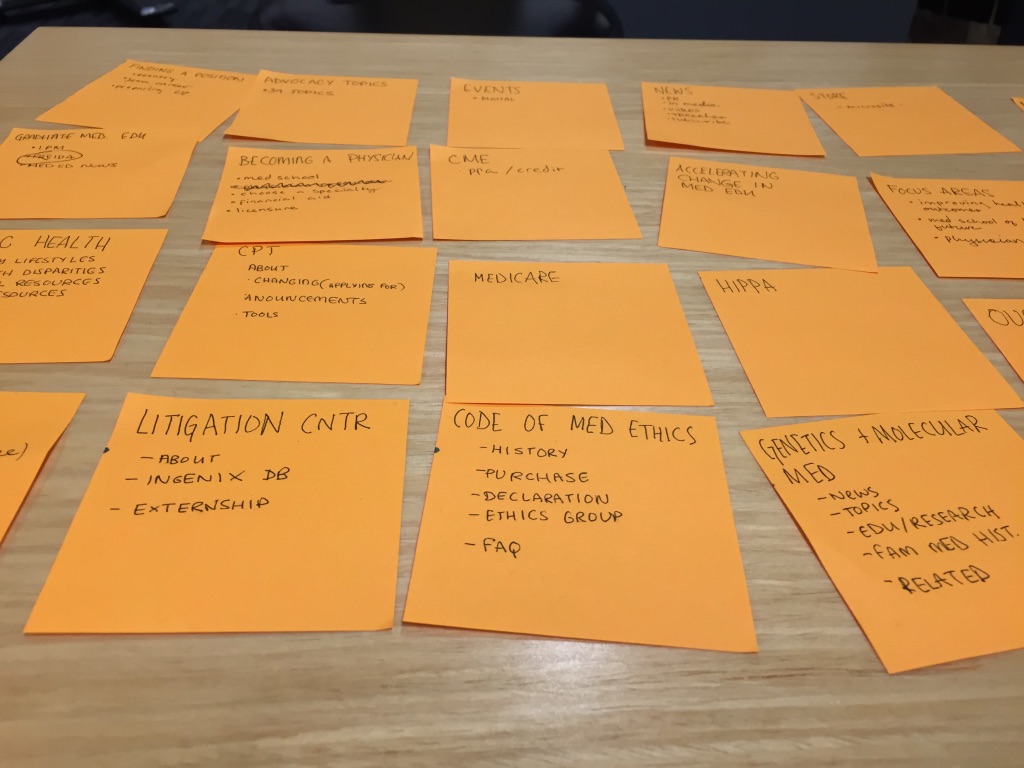 FINDING A POSITION
ADVOCACY TOPICS
EVENTS
NEWS
• PR
• in media
• subscribe
STORE
- microsite -
GRADUATE MED. EDU
• IPM
• FREIDA
NEWS
BECOMING A PHYSICIAN
• med school
• choose a specialty
• financial aid
• licensure
CME
PRA / credit
ACCELERATING
CHANGE IN
MED EDU
FOCUS AREAS
• improving health
outcomes
• med school of
future
C HEALTH
LIFESTYLES
TH DISPARITIES
RESOURCES
SOURCES
CPT
ABOUT
• CHANGING (APPLYING FOR)
ANOUNCEMENTS
• TOOLS
MEDICARE
HIPPA
OU
LITIGATION CNTR
- ABOUT
- INGENIX DB
- EXTERNSHIP
CODE OF MED ETHICS
- HISTORY
- PURCHASE
- DECLARATION
- ETHICS GROUP
- FAQ
GENETICS + MOLECULAR
MED
- NEWS
- TOPICS
- EDU/RESEARCH
- FAM MED HIST.
- RELATED